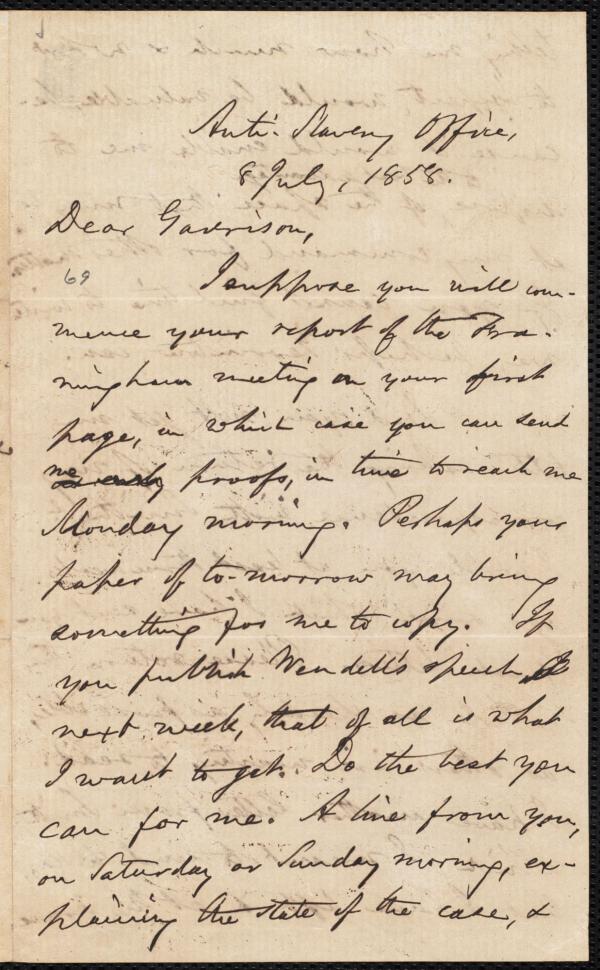 Anti-Slavery Office,
8 July, 1858.
Dear Garrison,
69
I suppose you will com-
mence your report of the Fra-
mingham meeting on your first
page, in which case you can send
me proofs, in time to reach me
Monday morning. Perhaps your
paper of to-morrow may bring
something for me to copy. If
you publish Wendell's speech
next week, that of all is what
I want to get. Do the best you
can for me. A line from you,
on Saturday or Sunday morning, ex-
plaining the state of the case, &